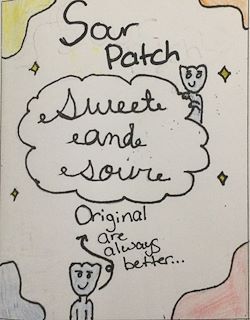 Sour
Patch
Sweet
and
sour
Original
are
always
better...